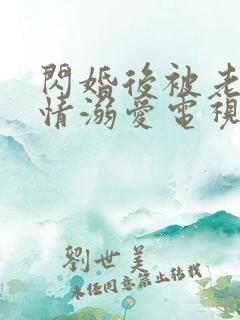 閃婚後被老
情溺愛電視
劉世美
未經同意禁止轉載